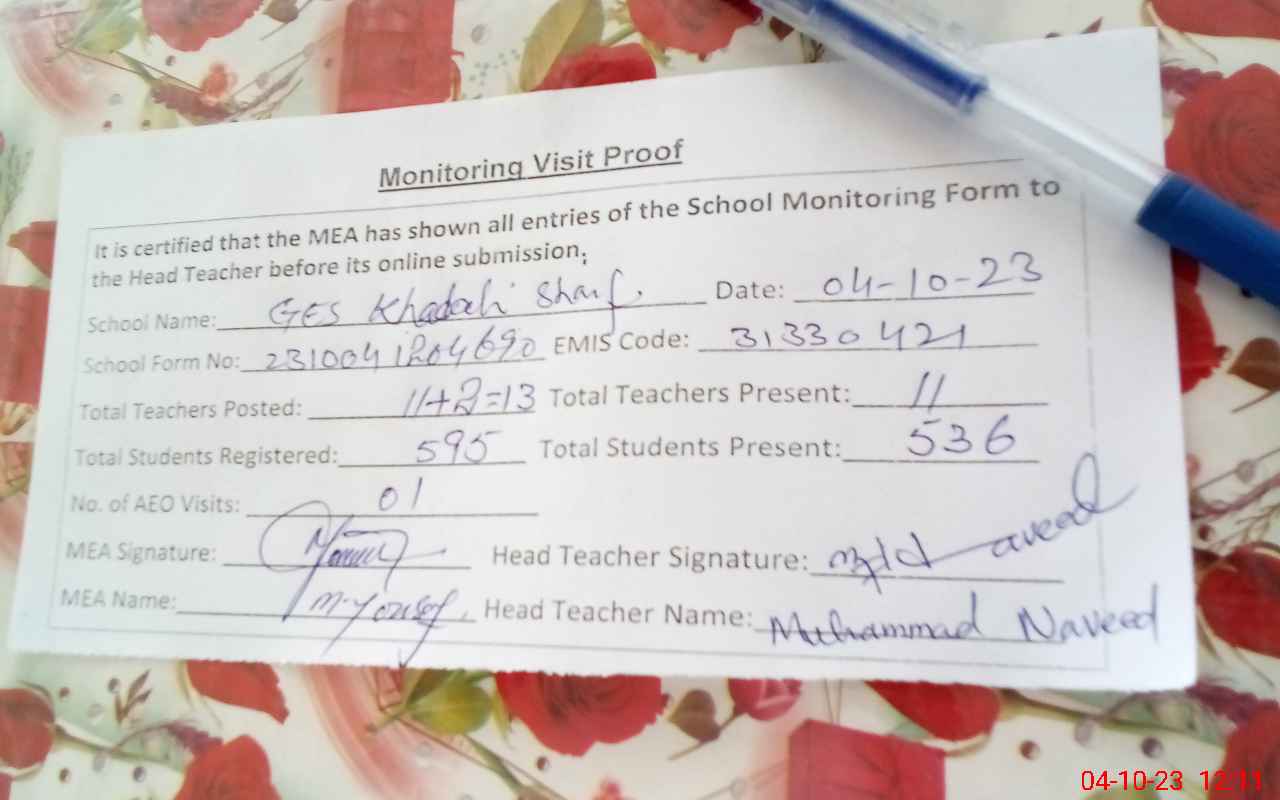 Monitoring Visit Proof
It is certified that the MEA has shown all entries of the School Monitoring Form to
the Head Teacher before its online submission;
School Name: GES Khadali Sharif. Date: 04-10-23
School Form No: 2310041204690 EMIS Code: 31330421
Total Teachers Posted: 11+2=13 Total Teachers Present: 11
Total Students Registered: 595 Total Students Present: 536
No. of AEO Visits: 01
MEA Signature: Head Teacher Signature: Naveed
MEA Name: M. Yousef. Head Teacher Name: Muhammad Naveed
04-10-23 12:11